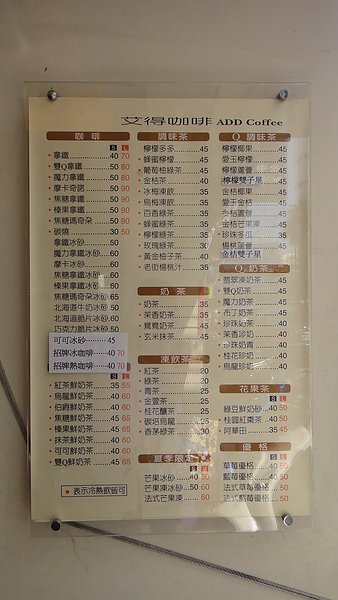 艾得咖啡 ADD Coffee
咖啡
S L
•拿鐵..........40 70
•雙Q拿鐵..........50 80
•魔力拿鐵..........50 80
•摩卡奇諾..........50 90
•焦糖拿鐵..........50 90
•榛果拿鐵..........50 90
•焦糖瑪奇朵..........50 90
•碳燒..........30 50
拿鐵冰砂..........50
魔力拿鐵冰砂..........60
摩卡冰砂..........60
焦糖拿鐵冰砂..........60
榛果拿鐵冰砂..........60
焦糖瑪奇朵冰砂..........65
北海道牛奶冰砂..........50
北海道脆片冰砂..........60
巧克力脆片冰砂
可可冰砂..........45
招牌冰咖啡..........40 70
招牌熱咖啡..........40 70
S L
•紅茶鮮奶茶..........35 55
•烏龍鮮奶茶..........40 60
•伯爵鮮奶茶..........40 60
•焦糖鮮奶茶..........45 65
•榛果鮮奶茶..........45 65
•抹茶鮮奶茶..........40 60
•可可鮮奶茶..........40 60
•雙Q鮮奶茶..........45 65
•表示冷熱飲皆可
調味茶
檸檬多多..........45
蜂蜜檸檬..........45
•葡萄柚綠茶..........45
•金桔茶..........40
•冰梅凍飲..........35
•烏梅凍飲..........35
百香綠茶..........35
蜂蜜綠茶..........35
檸檬綠茶..........35
玫瑰綠茶..........30
黃金柚子茶..........40
老街楊桃汁..........35
奶茶
•奶茶..........35
•茉香奶茶..........35
•鴛鴦奶茶..........45
•玄米抹茶..........45
凍飲茶
紅茶..........20
綠茶..........20
青茶..........20
金萱茶..........20
桂花釀茶..........20
碳培烏龍..........25
•香茅綠茶..........30
夏季限定
芒果冰砂..........40 50
芒果凍冰砂..........50 60
法式芒果凍..........60
Q 調味茶
檸檬椰果..........45
愛玉檸檬..........45
檸檬蘆薈..........45
檸檬雙子星..........45
金桔椰果..........45
愛玉金桔..........45
金桔蘆薈..........45
金桔芒果凍..........45
珍珠冬瓜..........35
楊桃蘆薈..........45
金桔雙子星..........45
Q 奶茶
翡翠凍奶茶..........45
雙Q奶茶..........45
魔力奶茶..........45
布丁奶茶..........45
珍珠奶茶..........40
茉香珍奶..........40
珍珠奶青..........40
桂花珍奶..........40
烏龍珍奶..........40
花果茶
S L
綠豆鮮奶砂..........50
•桂圓紅棗茶..........40 50
•阿華田..........35 45
優格
S L
草莓優格..........40 50
藍莓優格..........40 50
法式草莓優格..........50
法式藍莓優格..........60